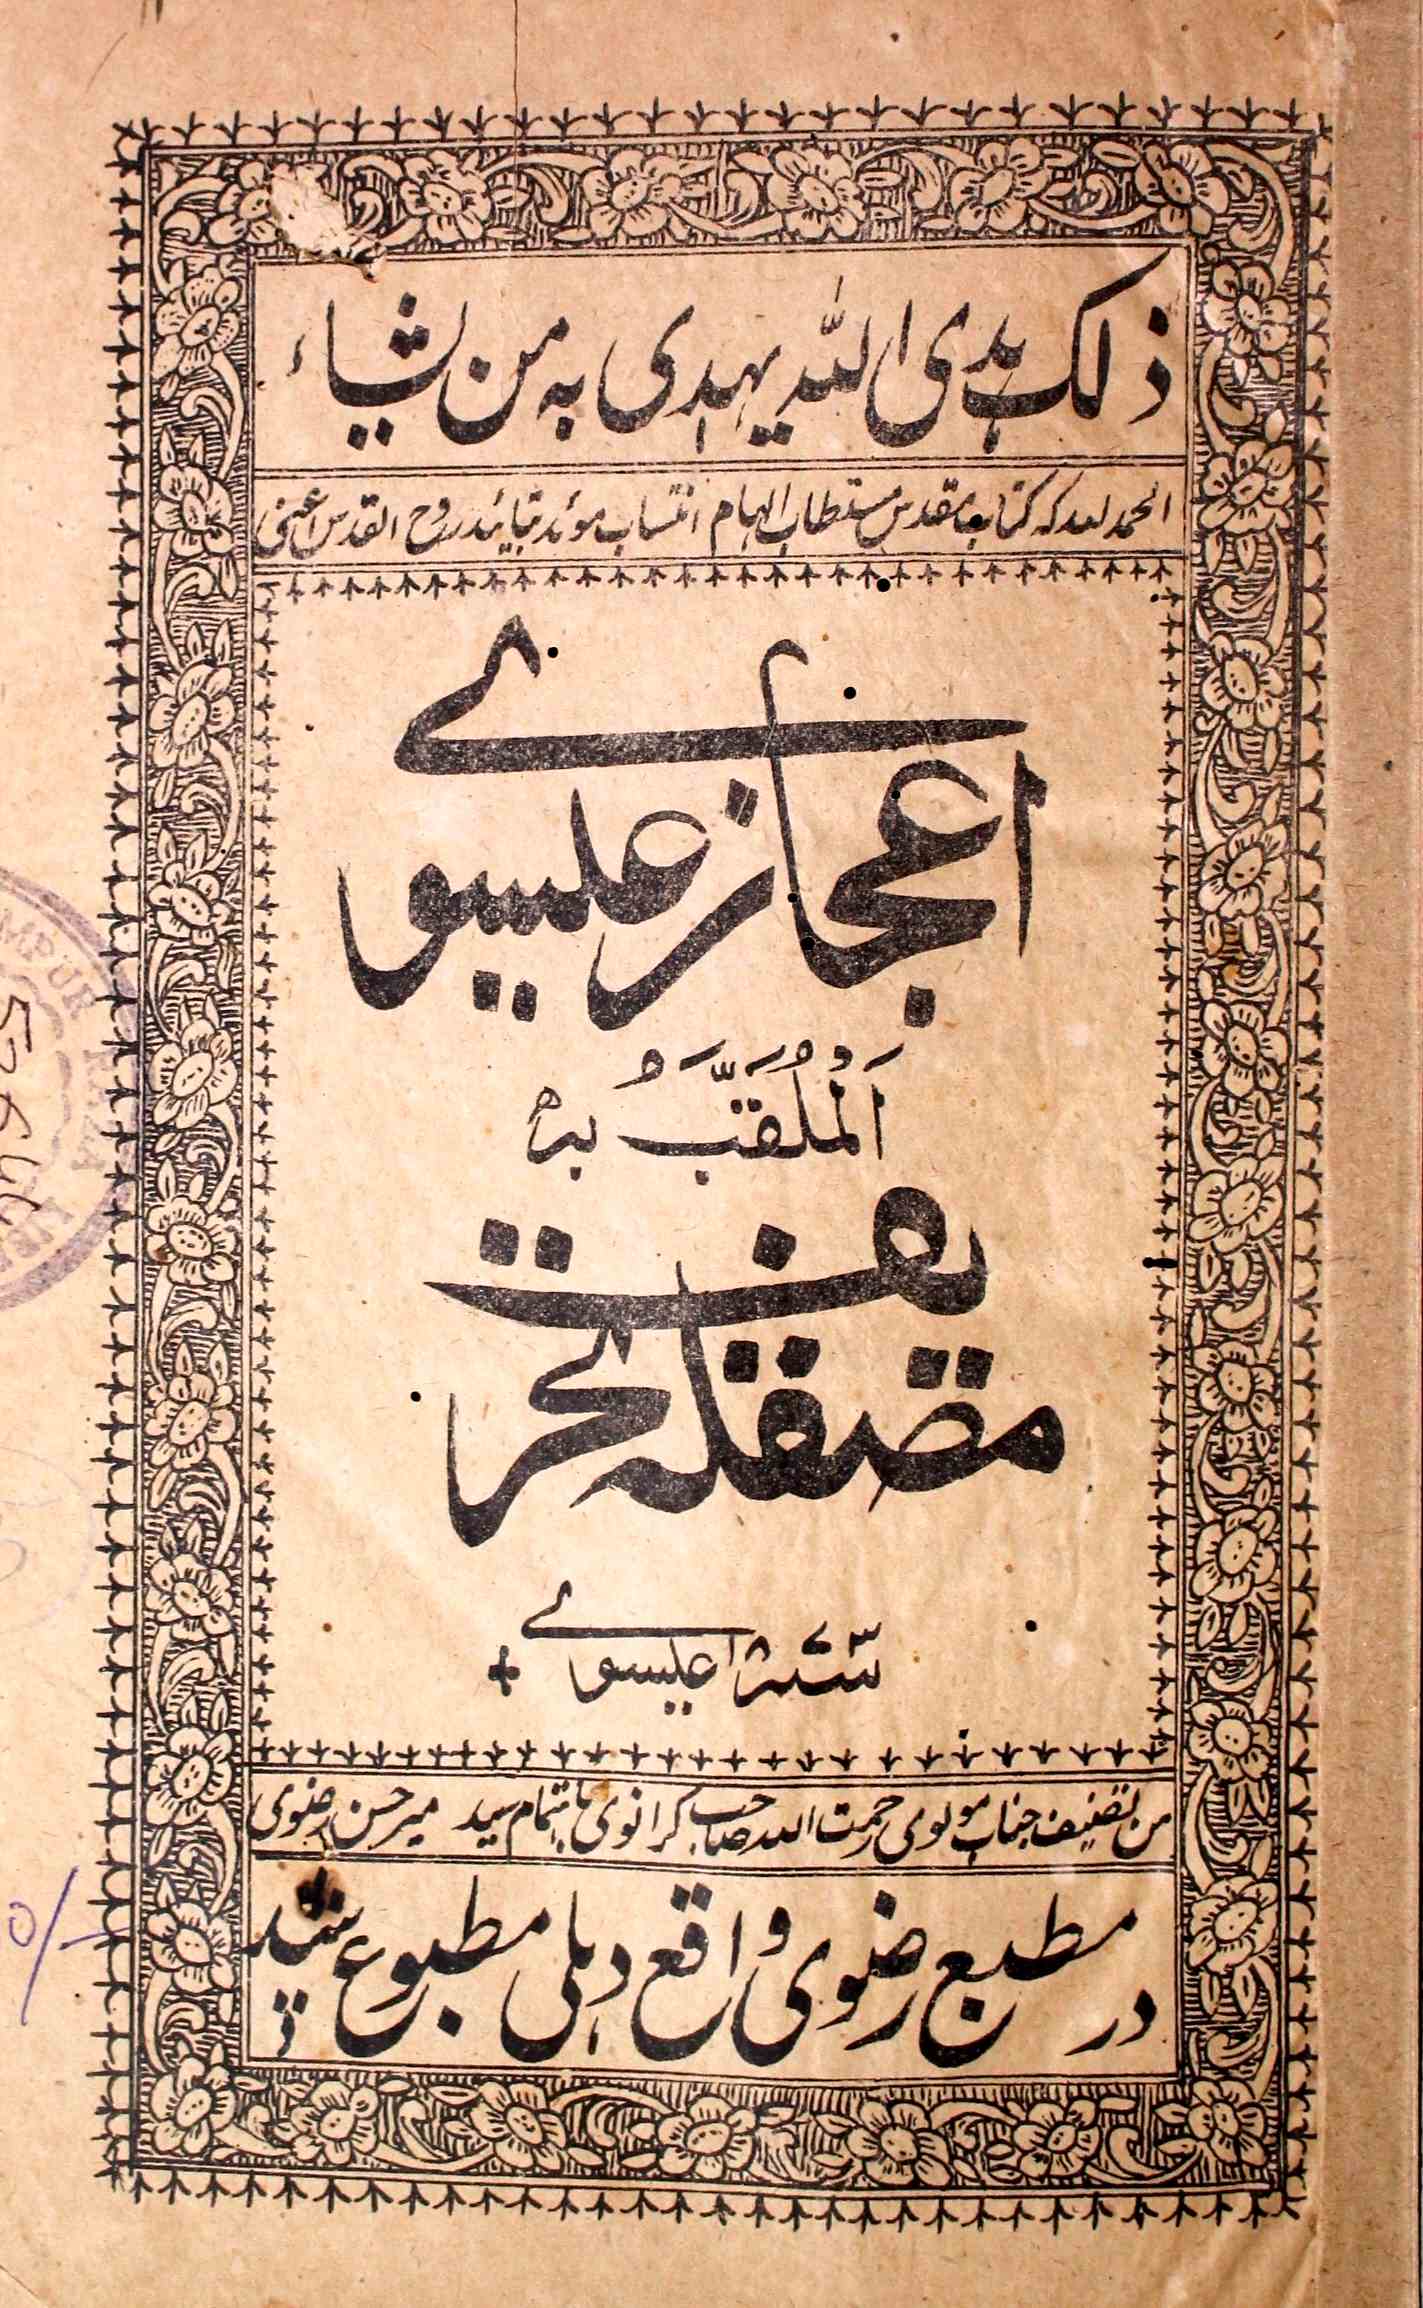 ذلک ہدی اللہ یہدی بہ من یشاء
الحمد للہ کہ کتاب مقدس مستطاب الہام انتساب موئد بتائید روح القدس اعنی
اعجاز عیسوے
اَلْمُلَقَّبْ بہ
مصقلہ تحریفت
عیسوے
من تصنیف جناب مولوی رحمت اللہ صاحب کرانوی باہتمام سید میر حسن رضوی
در مطبع رضوی واقع دہلی مطبوع شد